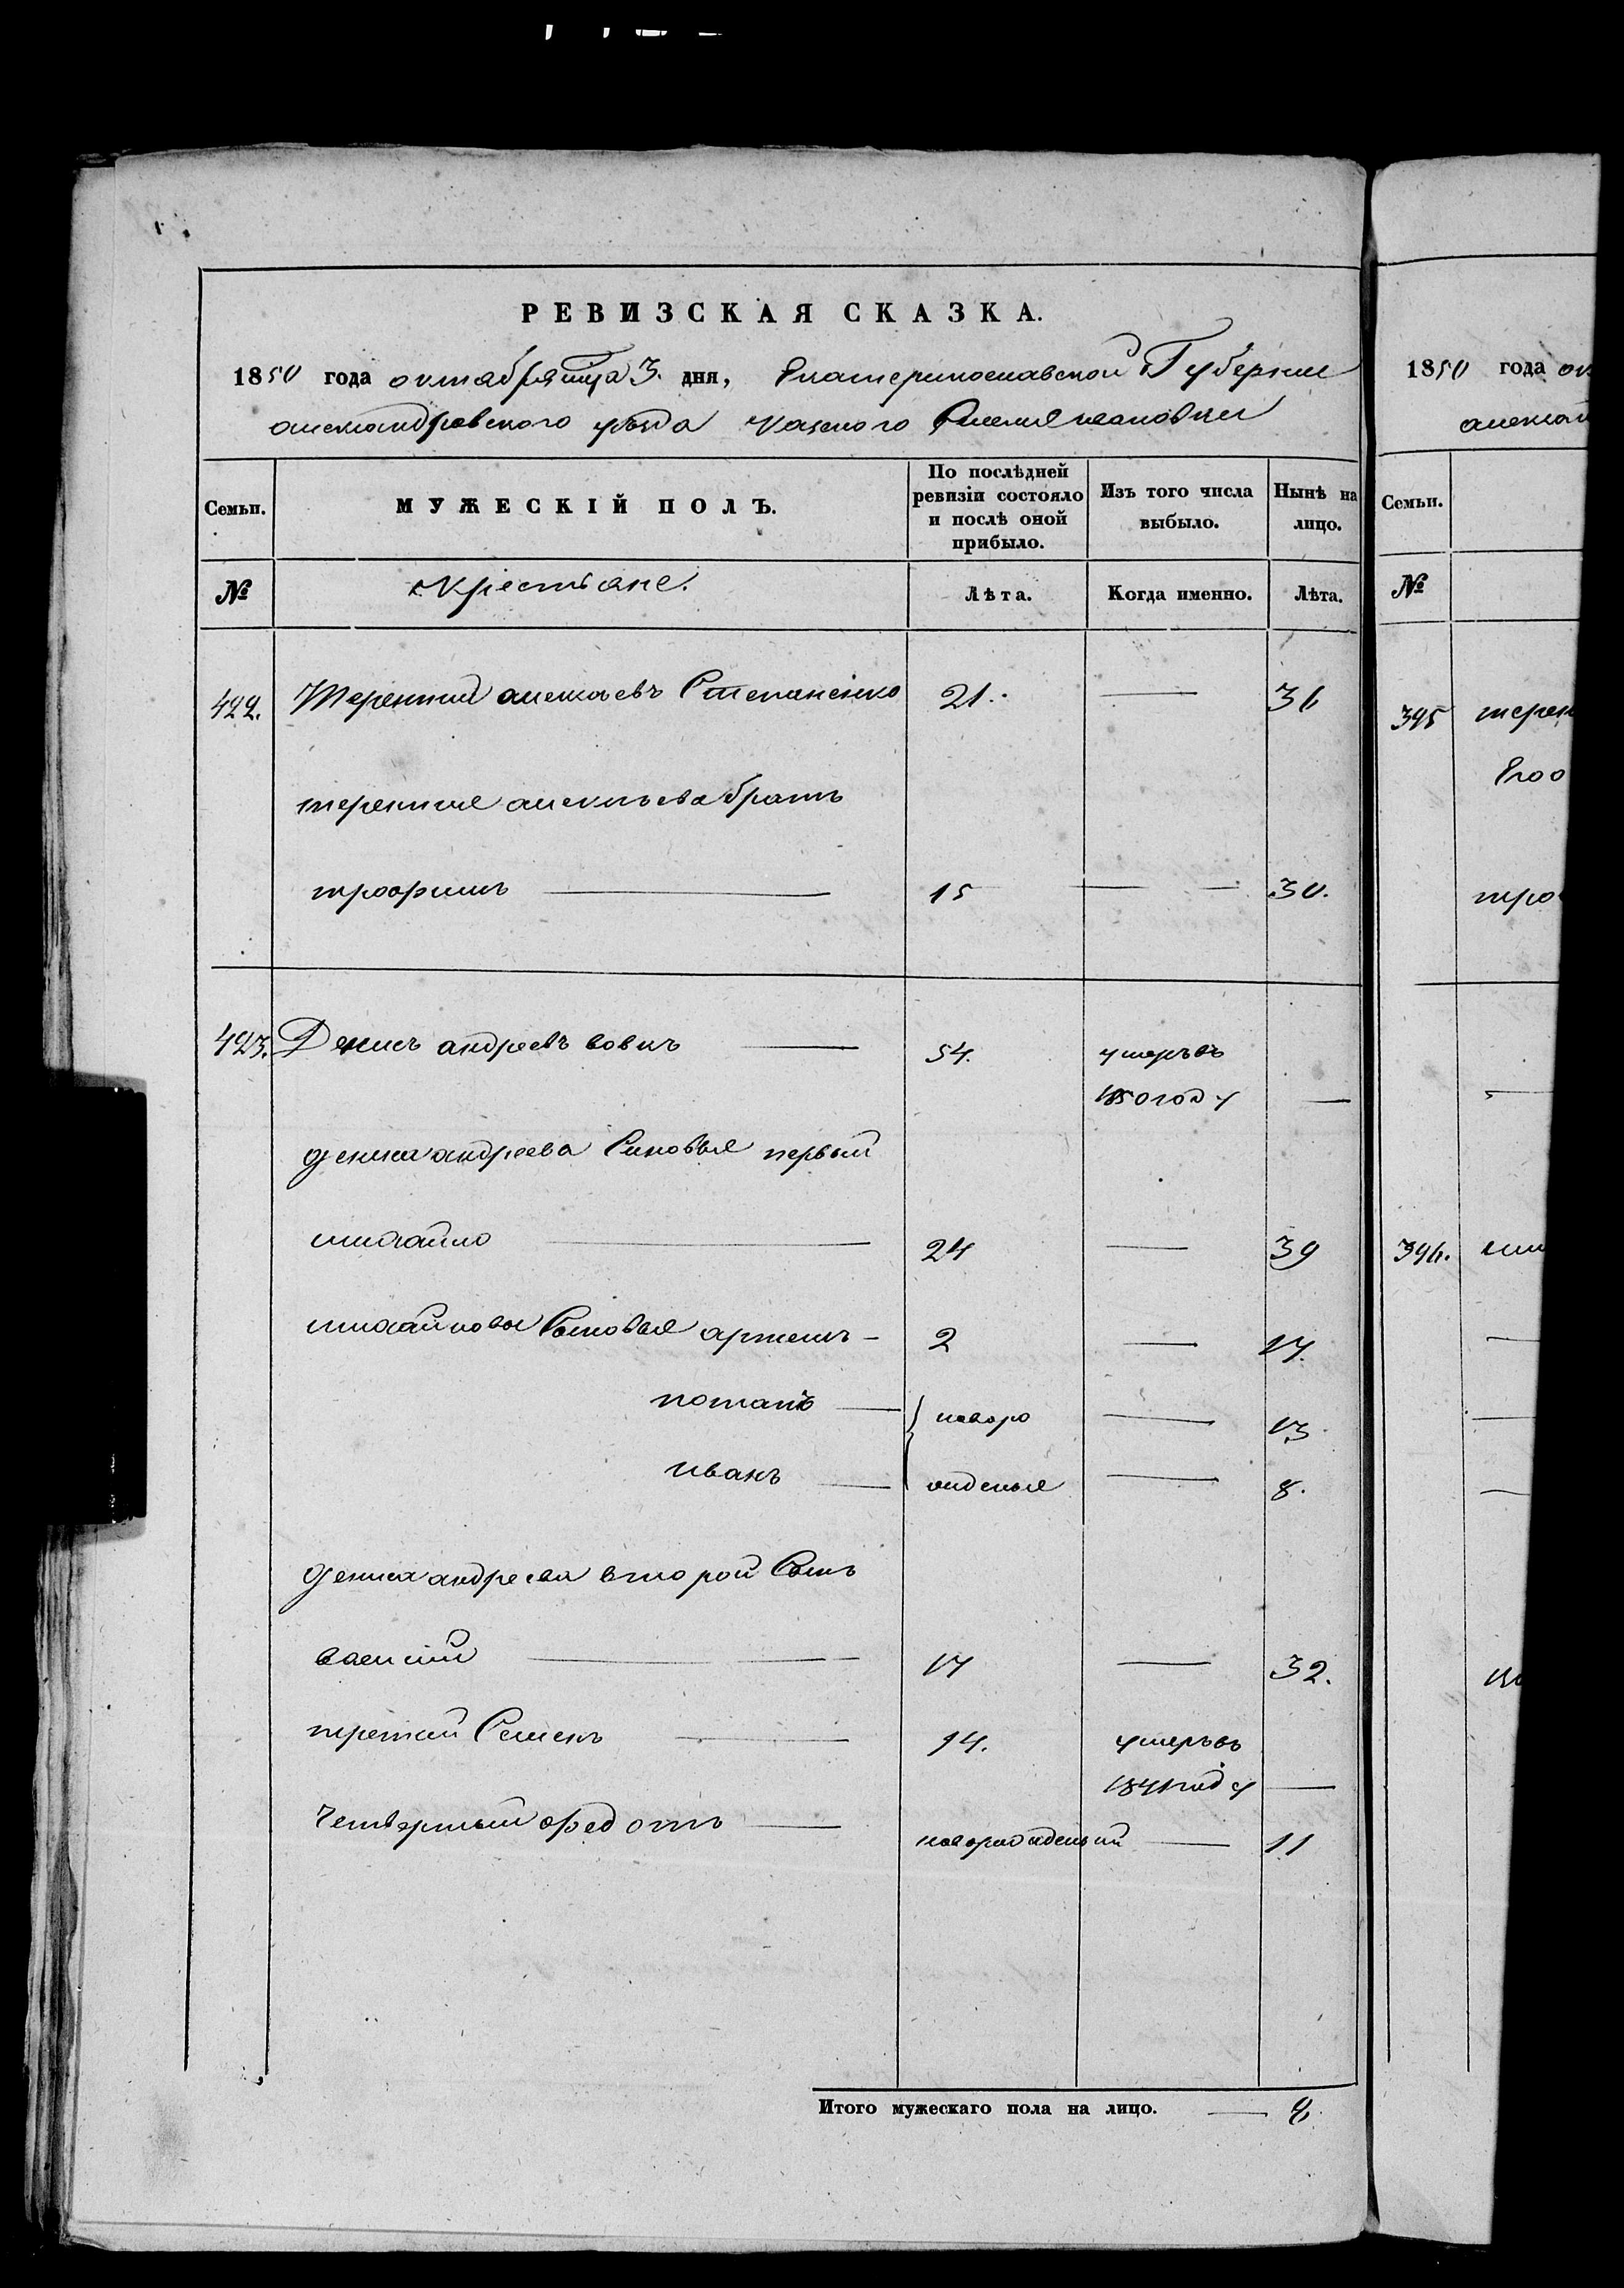 РЕВИЗСКАЯ СКАЗКА.
1850 года октября мца 3. дня, Екатеринославской Губернии
александровского уѣзда казенного
Семьи. МУЖЕСКІЙ ПОЛЪ. По послѣдней ревизіи состояло и послѣ оной прибыло. Изъ того числа выбыло. Нынѣ на лицо.
№ Крестьяне. Лѣта. Когда именно. Лѣта.
422. Терентий алексѣевъ Степаненко 21. — 36
терентия алексѣева братъ
трофимъ — 15 — 30.
423. Денисъ андреевъ вовкъ — 54. умеръ въ
1850 году —
дениса андреева Синовья первый
михайло — 24 — 39
михайловы Сыновья артемъ — 2 — 17.
потапъ — новоро — 13
иванъ — жденые — 8.
дениса андреева второй Сынъ
василий — 17 — 32.
третий Семенъ — 14. умеръ въ
1841 году —
четвертый федотъ — новорожденый — 11
Итого мужескаго пола на лицо. — 8.
1850 года ок
алексан
Семьи.
№
395 терен
трო
396. ми